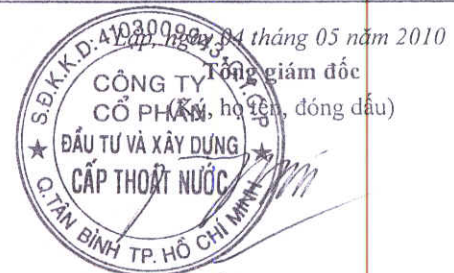 Lập, ngày 04 tháng 05 năm 2010
Tổng giám đốc
(Ký, họ tên, đóng dấu)
CÔNG TY
CỔ PHẦN
ĐẦU TƯ VÀ XÂY DỰNG
CẤP THOÁT NƯỚC
Q.TÂN BÌNH TP. HỒ CHÍ MINH